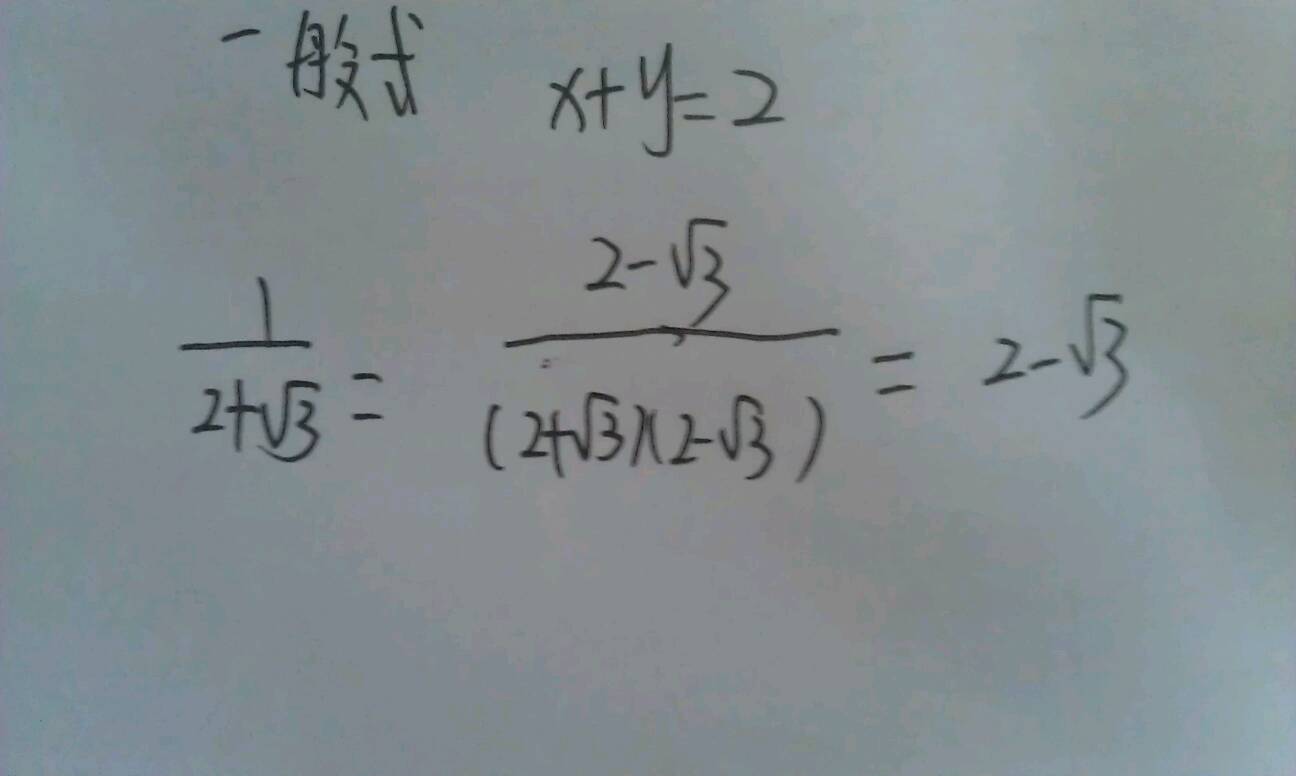 一般式 x+y=2
1/(2+√3) = (2-√3)/((2+√3)(2-√3)) = 2-√3